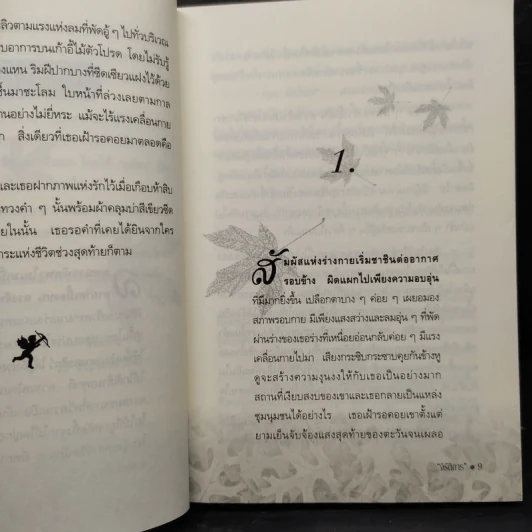 ลิวตามแรงแห่งลมที่พัดอู้ ๆ ไปทั่วบริเวณ
บอาการบนเก้าอี้ไม้ตัวโปรด โดยไม่รับรู้
งแหน ริมฝีปากบางที่ซีดเซียวแฝงไว้ด้วย
ขึ้นมาชะโลม ใบหน้าที่ล่วงเลยตามกาล
านอย่างไม่ยี่หระ แม้จะไร้แรงเคลื่อนกาย
ก สิ่งเดียวที่เธอเฝ้ารอคอยมาตลอดคือ
และเธอฝากภาพแห่งรักไว้เมื่อเกือบห้าสิบ
ทวงคำ ๆ นั้นพร้อมผ้าคลุมบ่าสีเขียวซีด
ยในนั้น เธอรอคำที่เคยได้ยินจากใคร
าระแห่งชีวิตช่วงสุดท้ายก็ตาม
1.
สัมผัสแห่งร่างกายเริ่มชาชินต่ออากาศ
รอบข้าง ผิดแผกไปเพียงความอบอุ่น
ที่มีมากยิ่งขึ้น เปลือกตาบาง ๆ ค่อย ๆ เผยอมอง
สภาพรอบกาย มีเพียงแสงสว่างและลมอุ่น ๆ ที่พัด
ผ่านร่างของเธอร่างที่เหนื่อยอ่อนกลับค่อย ๆ มีแรง
เคลื่อนกายไปมา เสียงกระซิบกระซาบคุยกันข้างหู
ดูจะสร้างความงุนงงให้กับเธอเป็นอย่างมาก
สถานที่เงียบสงบของเขาและเธอกลายเป็นแหล่ง
ชุมนุมชนได้อย่างไร เธอเฝ้ารอคอยเขาตั้งแต่
ยามเย็นจับจ้องแสงสุดท้ายของตะวันจนเผลอ
"จิรสิการ" ● 9